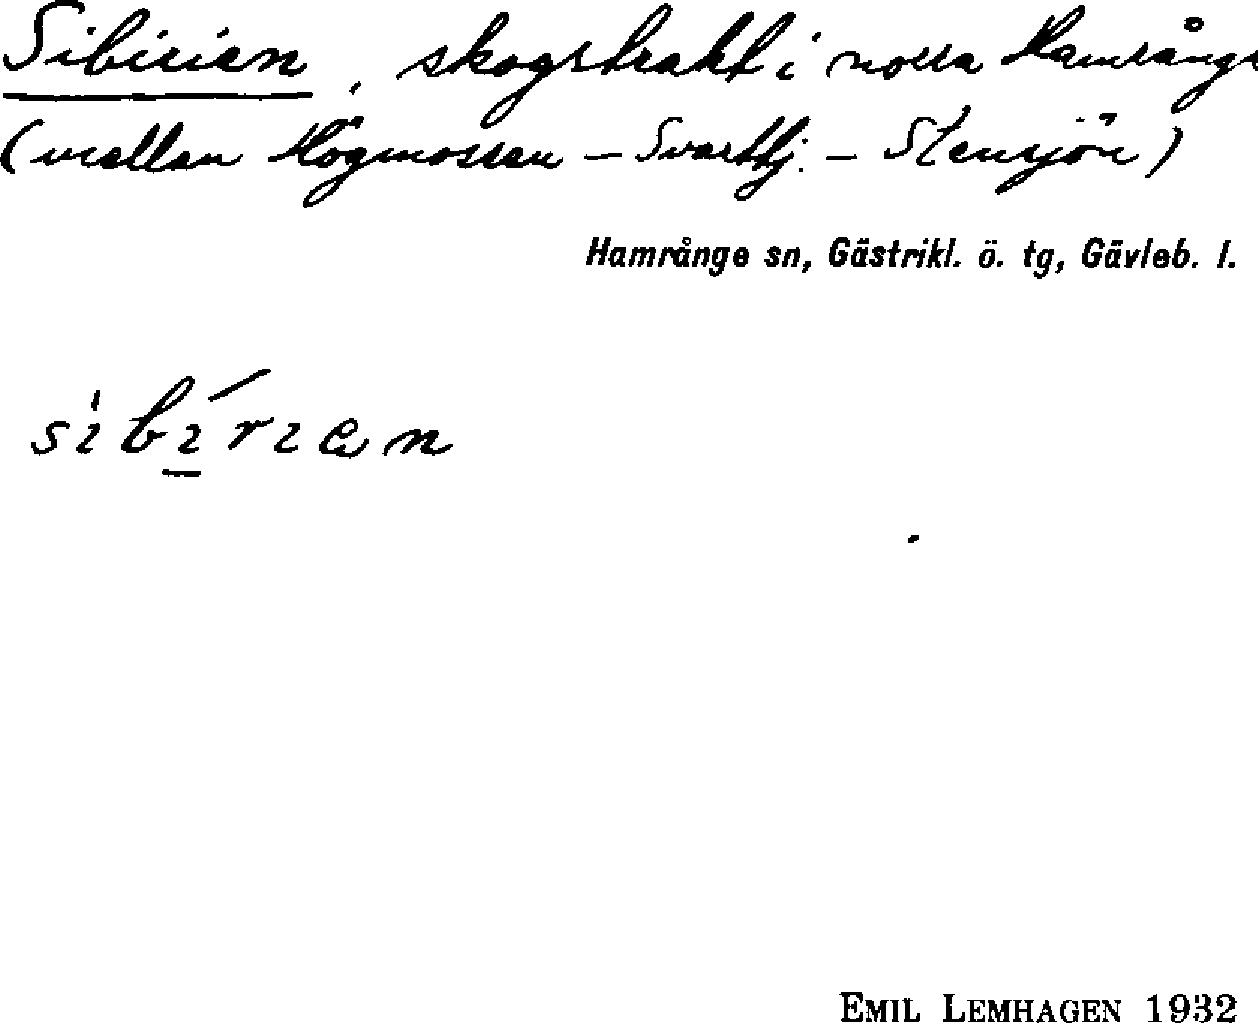 Sibirien, skogstrakt i norra Hamrånge
(mellan Högmossen – Svarttj. – Stensjön)
Hamrånge sn, Gästrikl. ö. tg, Gävleb. l.
sibírien
EMIL LEMHAGEN 1932